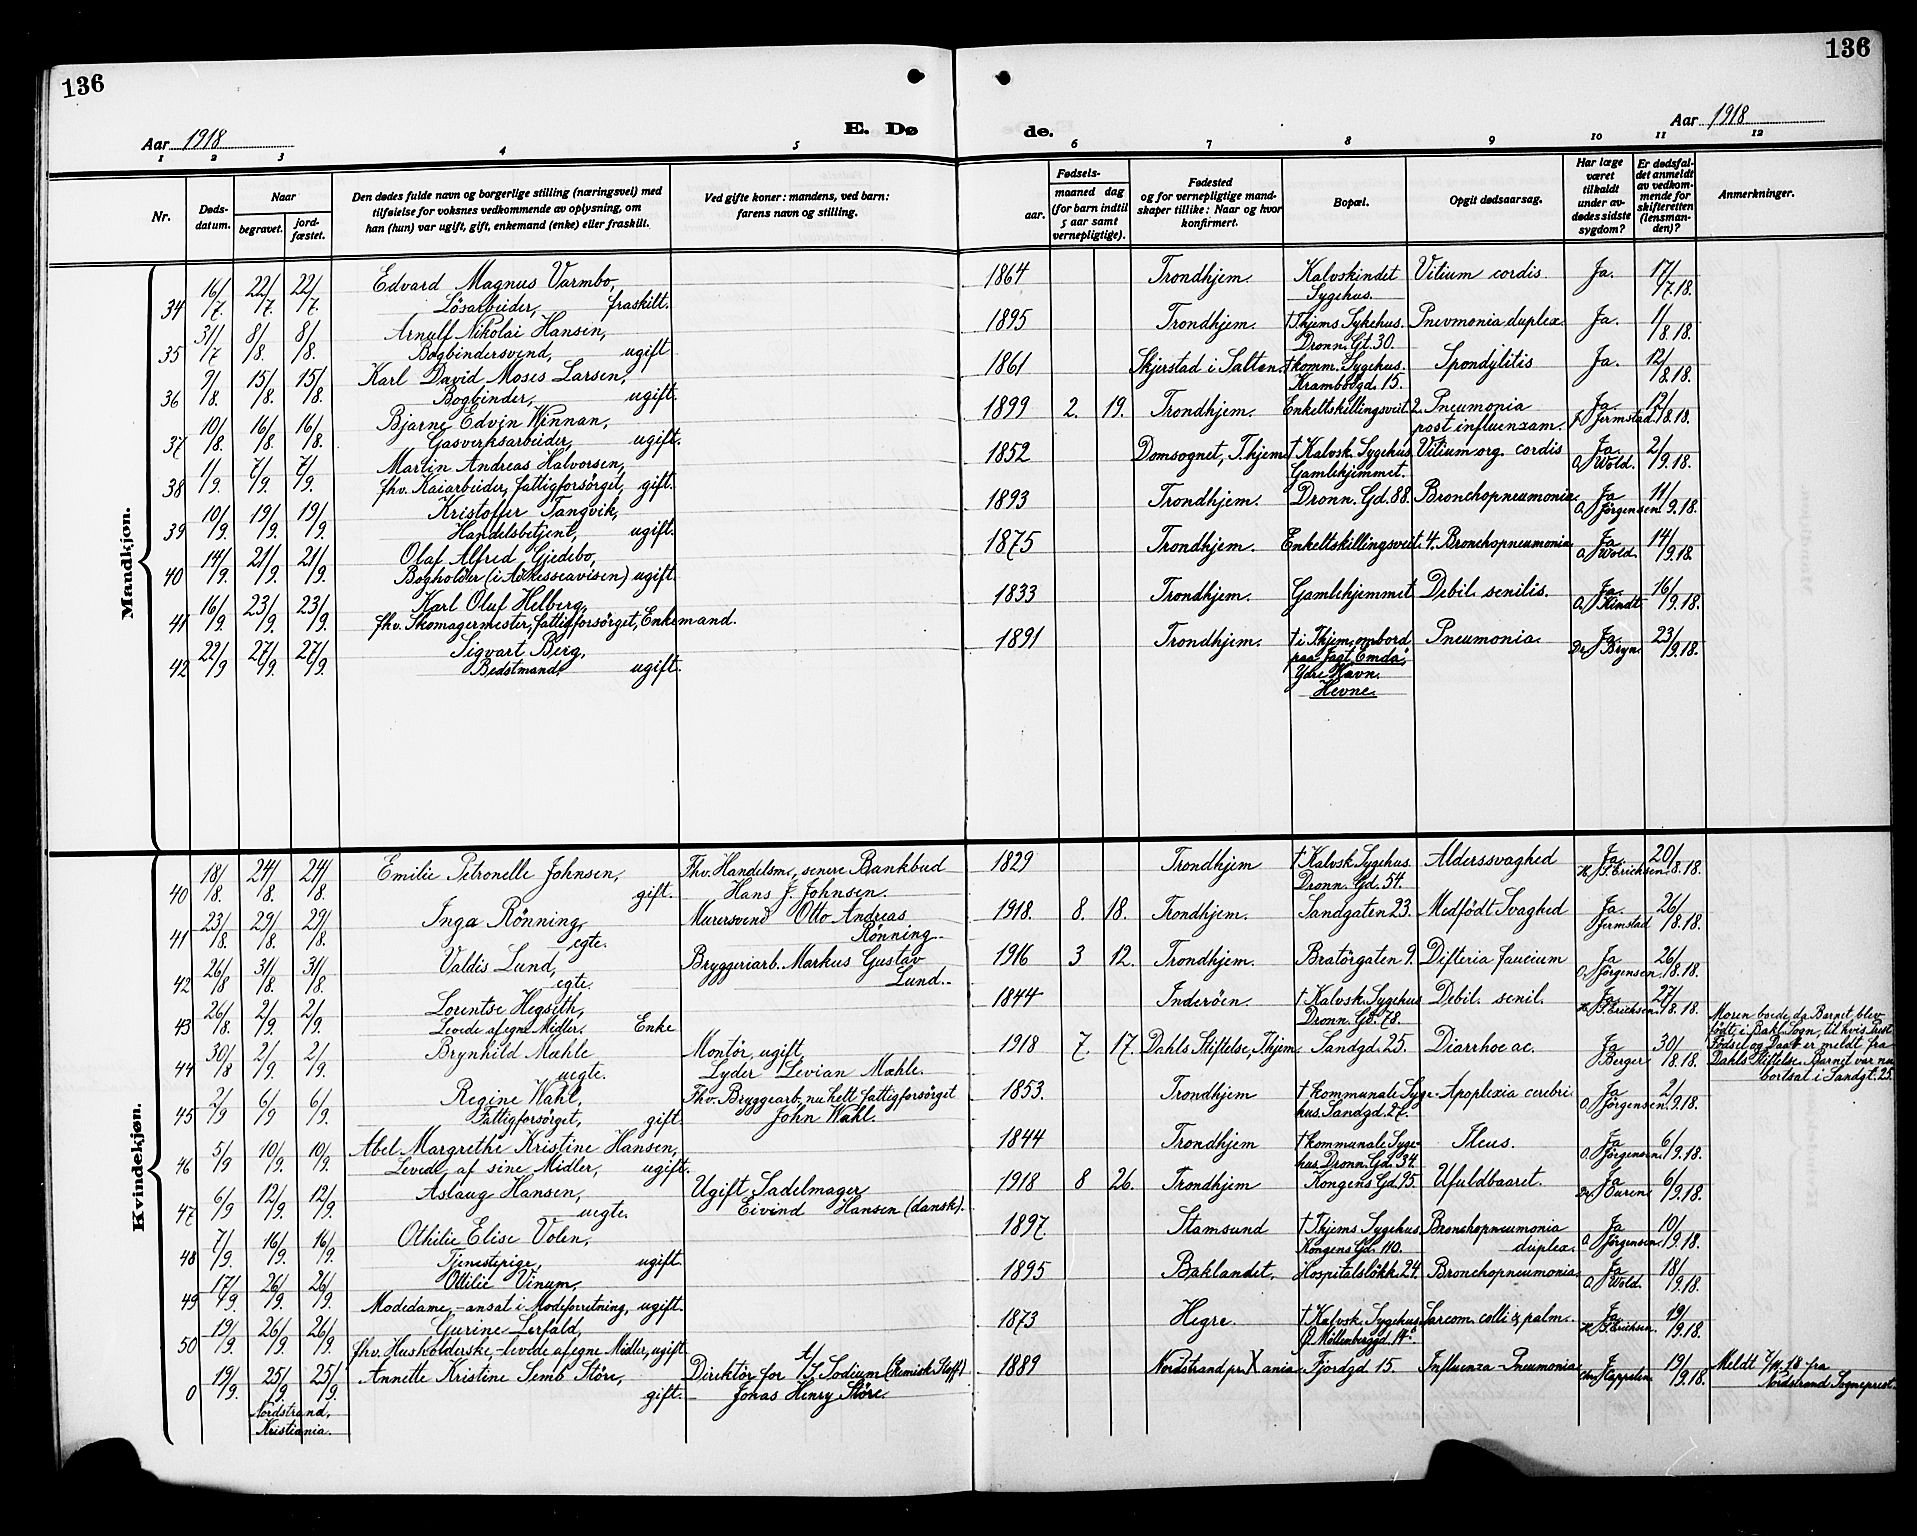 136
136
Aar 1918
E. Dø
de.
Aar 1918
1 2 3 4 5 6 7 8 9 10 11 12
Nr.
Døds-
datum.
Naar
begravet.
jord-
fæstet.
Den dødes fulde navn og borgerlige stilling (næringsvei) med
tilføielse for voksnes vedkommende av oplysning, om
han (hun) var ugift, gift, enkemand (enke) eller fraskilt.
Ved gifte koner: mandens, ved barn:
farens navn og stilling.
Fødsels-
aar.
maaned dag
(for barn indtil
5 aar samt
vernepligtige).
Fødested
og for vernepligtige mand-
skaper tillike: Naar og hvor
konfirmert.
Bopæl.
Opgit dødsaarsag.
Har læge
været
tilkaldt
under av-
dødes sidste
sygdom?
Er dødsfal-
det anmeldt
av vedkom-
mende for
skifteretten
(lensman-
den)?
Anmerkninger.
Mandkjøn.
34 16/7. 22/7. 22/7. Edvard Magnus Varmbo, 1864 Trondhjem. Kalvskindet Vitium cordis Ja. 17/7.18.
Lösarbeider, fraskilt. Sygehus.
35 31/7 8/8. 8/8. Arnulf Nikolai Hansen, 1895 Trondhjem. † Thjems Sykehus. Pnevmonia duplex. Ja. 1/8.18.
Bogbindersvend, ugift Dronn. Gt. 30.
36 9/8. 15/8. 15/8. Karl David Moses Larsen, 1861 Skjerstad i Salten. † komm. Sygehus. Spondylitis Ja. 12/8.18.
Bogbinder, ugift. Krambodgd. 15.
37 10/8. 16/8. 16/8. Bjarne Edvin Winnan, 1899 2. 19. Trondhjem. Enkeltskillingsveit 2. Pneumonia Ja. 12/8.18.
Gasverksarbeider, ugift. post influenzam. Jermstad
38 1/9. 7/9. 7/9. Martin Andreas Halvorsen, 1852 Domsognet, T.hjem † Kalvsk. Sygehus Vitium org. cordis Ja. 2/9.18.
fhv. Kaiarbeider, fattigforsörget, gift. Gamlehjemmet. O. Wold.
39 10/9. 19/9. 19/9. Kristoffer Tangvik, 1893 Trondhjem. Dronn. Gd. 88. Bronchopneumonia. Ja 11/9.18.
Handelsbetjent, ugift. O. Jörgensen.
40 14/9. 21/9. 21/9. Olaf Alfred Gjedebo, 1875 Trondhjem. Enkeltskillingsveit. 4. Bronchopneumonia. Ja 14/9.18.
Bogholder (i Adresseavisen) ugift. O. Wold.
41 16/9. 23/9. 23/9. Karl Oluf Helberg, 1833 Trondhjem. Gamlehjemmet Debil. senilis. Ja. 16/9.18.
fhv. Skomagermester, fattigforsörget, Enkemand. O. Kindt
42 22/9 27/9. 27/9. Sigvart Berg, 1891 Trondhjem. † i Thjem, ombord Pneumonia. Ja. 23/9.18.
Bedstmand, ugift. paa Jagt "Emda", Dr. Bryn.
Ydre Havn.
Hevne.
Kvindekjøn.
40 18/8. 24/8. 24/8. Emilie Petronelle Johnsen, Fhv. Handelsm., senere Bankbud 1829 Trondhjem † Kalvsk. Sygehus. Alderssvaghed Ja. 20/8.18.
gift. Hans J. Johnsen. Dronn. Gd. 54. Erichsen.
41 23/8. 29/8. 29/8. Inga Rönning, Murersvend Otto Andreas 1918. 8. 18. Trondhjem. Sandgaten 23. Medfödt Svaghed Ja. 26/8.18.
egte. Rönning. Jermstad
42 26/8 31/8. 31/8. Valdis Lund, Bryggeriarb. Markus Gustav 1916 3 12. Trondhjem. Bratörgaten 9. Difteria faucium Ja 26/8.18.
egte. Lund. O. Jörgensen.
43 26/8. 2/9. 2/9. Lorentse Hegseth, 1844 Inderöen. † Kalvsk. Sygehus Debil. senil. Ja 27/8.18.
Levede af egne Midler. Enke Dronn. Gd. 78. Erichsen.
44 30/8 2/9. 2/9. Brynhild Mæhle Montör, ugift, 1918 7. 17. Dahls Stiftelse, Thjem. Sandgd. 25. Diarrhoe ac. Ja 30/8.18. Moren boede, da Barnet blev
uegte. Lyder Levian Mæhle. Berger födt, i Bakl. Sogn, til hvis Prest
Födsel og Daab er meldt fra
Dahls Stiftelse. Barnet var nu
bortsat i Sandgt. 25.
45 2/9 6/9 6/9. Regine Wahl, Fhv. Bryggearb., nu helt fattigforsörget 1853. Trondhjem † Kommunale Syge- Apoplexia cerebri. Ja 2/9.18.
Fattigforsörget, gift. John Wahl. hus. Sandgd. O. Jörgensen.
46 5/9 10/9. 10/9. Abel Margrethe Kristine Hansen, 1844 Trondhjem † kommunale Syge- Ileus. Ja 6/9.18.
Levede af sine Midler, ugift. hus. Dronn. Gd. 34. O. Jörgensen.
47 6/9 12/9. 12/9. Aslaug Hansen, Ugift Sadelmager 1918 8 26. Trondhjem Kongens Gd. 95. Ufuldbaaret. Ja 6/9.18.
uegte. Eivind Hansen (dansk).
48 7/9. 16/9. 16/9. Othilie Elise Volen, 1897 Stamsund † Thjems Sygehus Bronchopneumonia Ja 10/9.18.
Tjenestepige, ugift. Kongens Gd. 110. duplex. O. Jörgensen.
49 17/9. 26/9. 26/9. Ottilie Vinum, 1895 Baklandet. Hospitalslökk. 24. Bronchopneumonia. Ja 18/9.18.
Modedame, - ansat i Modeforretning, ugift. O. Wold.
50 19/9. 26/9. 26/9. Gurine Lerfald, 1873 Hegre. † Kalvsk. Sygehus. Sarcom. colli & palm. Ja 19/9.18.
fhv. Husholderske - levede af egne Midler, ugift. Ø. Möllenberggd. 14ᵇ. Erichsen.
0 19/9. 25/9 25/9. Annette Kristine Semb Störe, Direktör for A/S. Sodium (Kemisk Stoff) 1889 Nordstrand pr. Xania. Fjordgd. 15. Influenza-Pneumonia. J 19/9.18. Meldt 18 fra
gift. Jonas Henry Störe Chr. Kappelen. Nordstrand Sogneprest.
Nordstrand,
Kristiania.